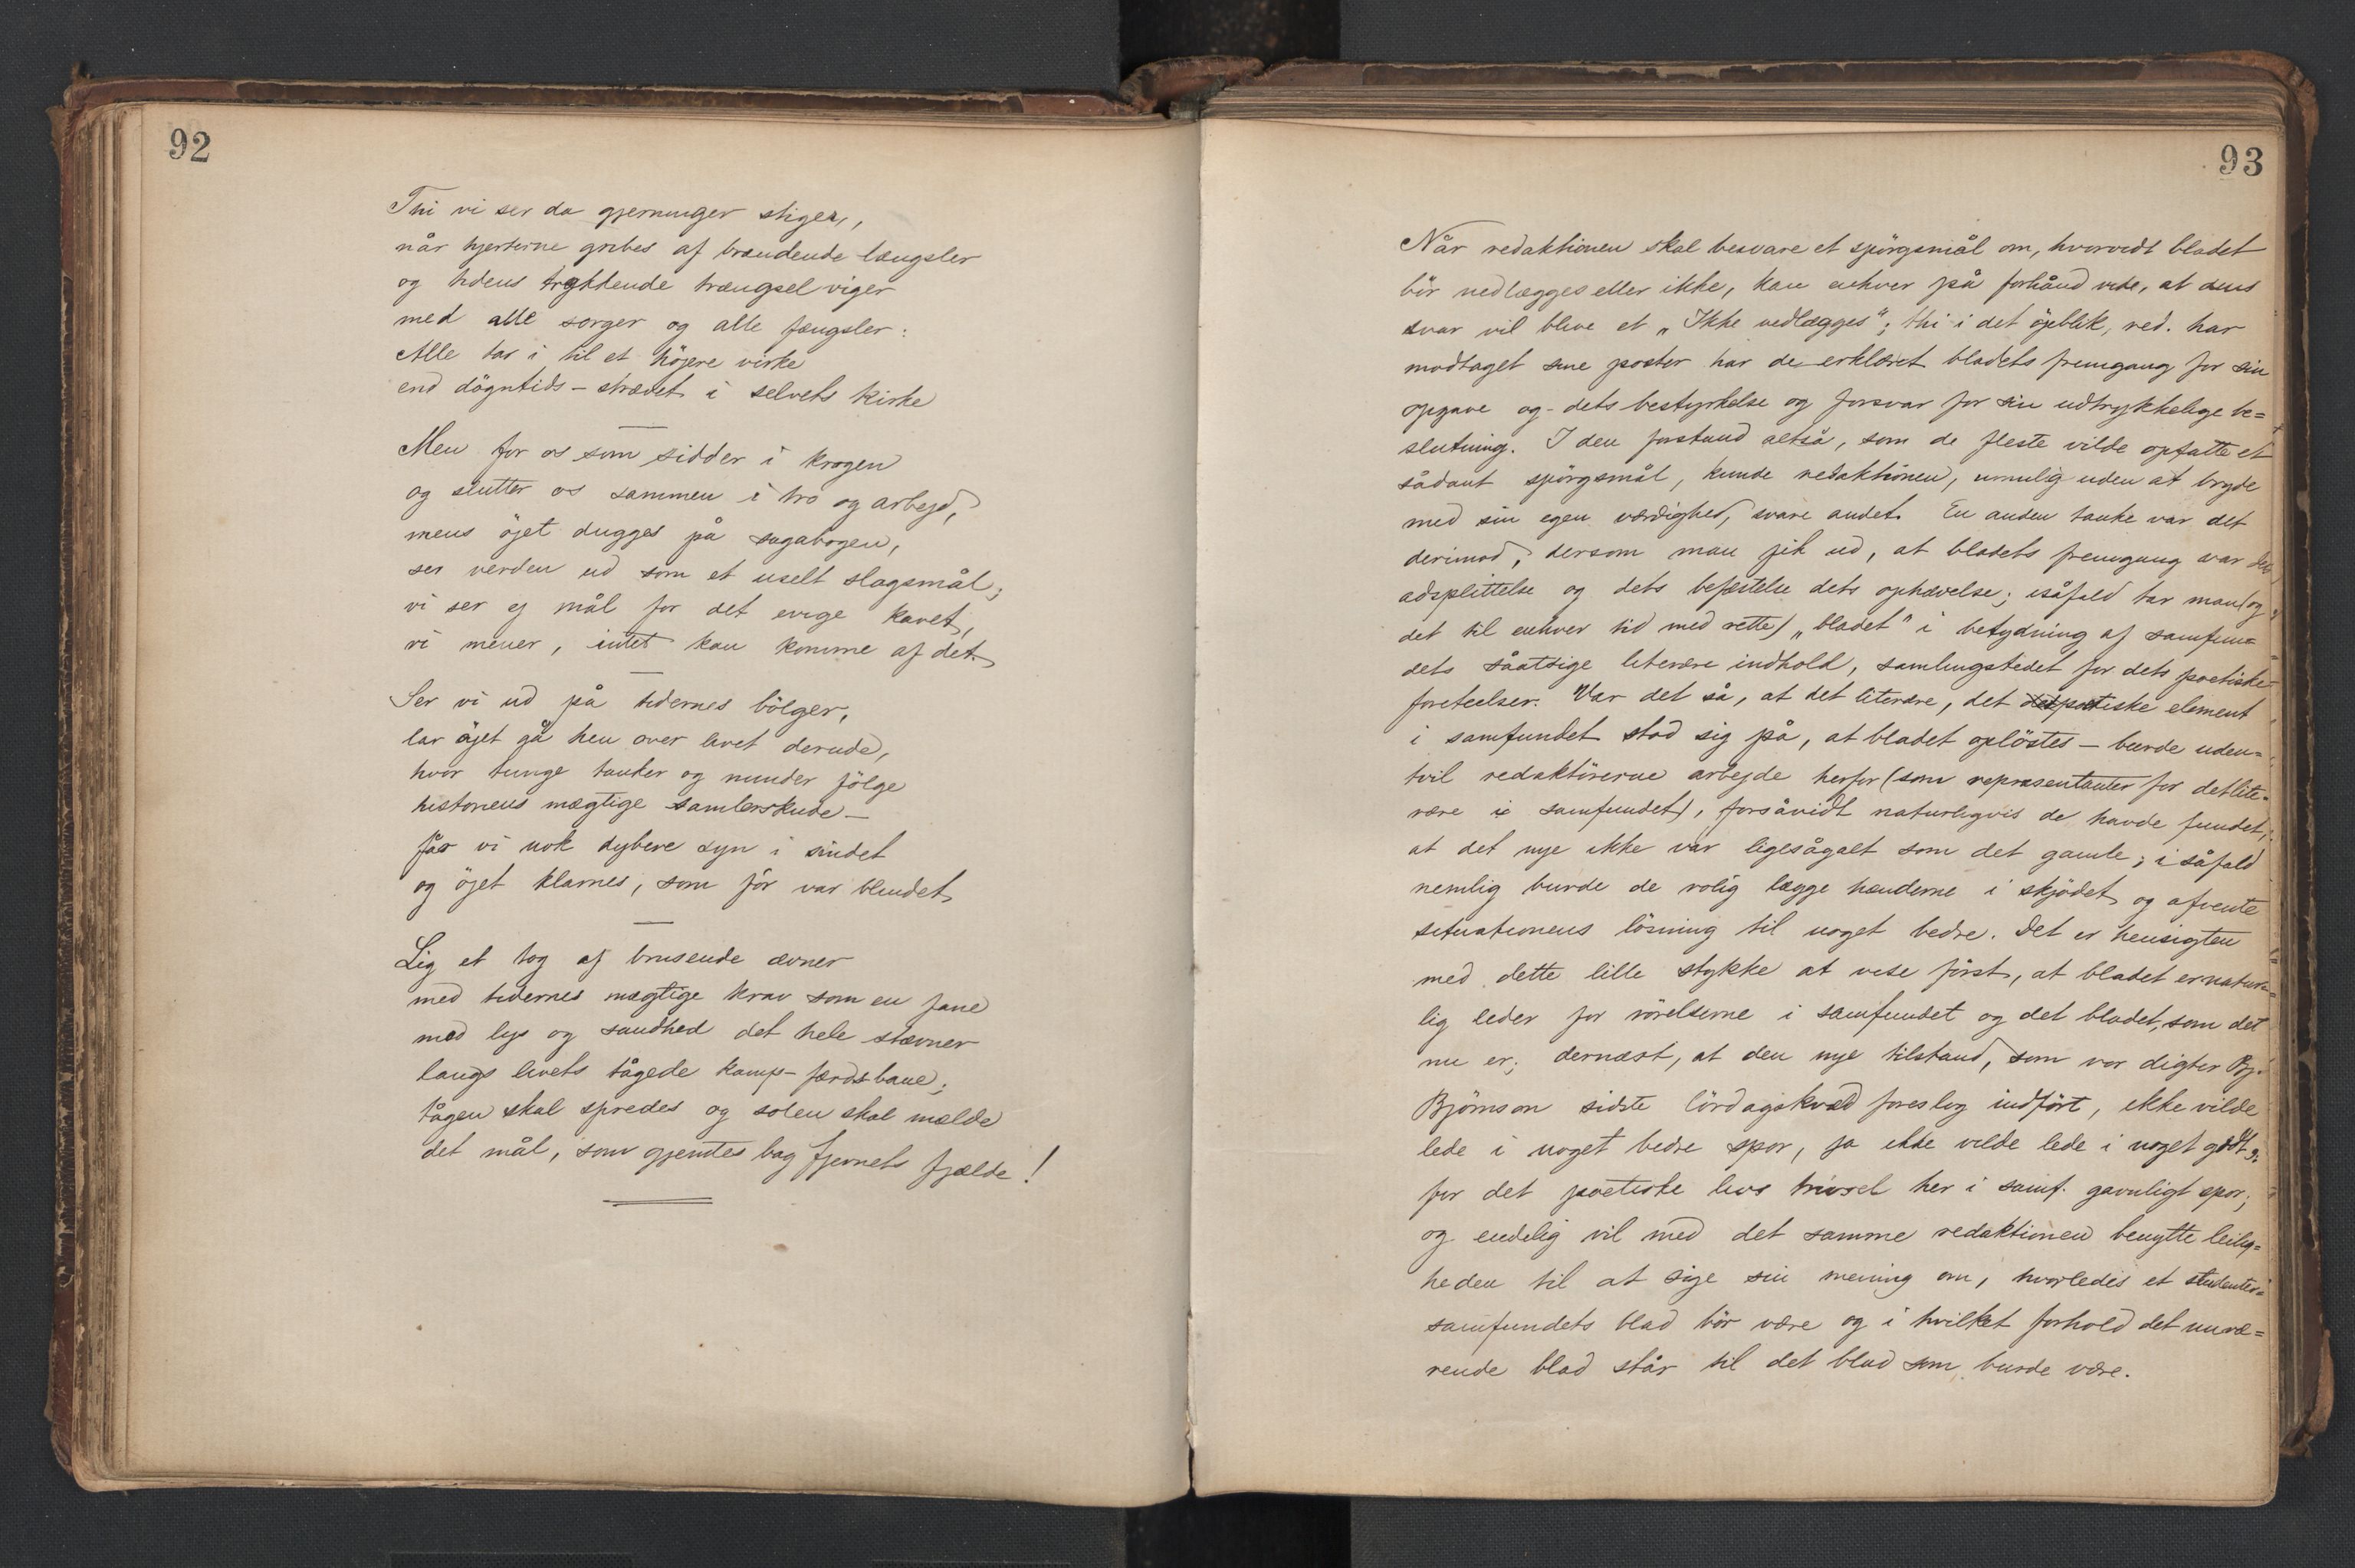 92
Thi vi ser da gjerninger stiger,
når hjerterne gribes af brændende længsler
og tidens trykkende trængsel viger
med alle sorger og alle fængsler:
Alle tar i til et höjere virke
end dögntids-strævet i selvets kirke
Men for os som sidder i krogen
og slutter os sammen i tro og arbejd,
mens öjet dugges på sagabogen,
ser verden ud som et uselt slagsmål;
vi ser ej mål for det evige kavet,
vi mener, intet kan komme af det.
Ser vi ud på tidernes bölger,
lar öjet gå hen over livet derude,
hvor tunge tanker og munder fölge
historiens mægtige samlerskude—
får vi nok dybere syn i sindet
og öjet klarnes, som för var blindet
Lig et tog af brusende ævner
med tidernes mægtige krav som en fane
med lys og sandhed det hele stævner
langs livets tågede kamp-færdsbane;
tågen skal spredes og solen skal mælde
det mål, som gjemtes bag fjernets fjælde!
93
Når redaktionen skal besvare et spörgsmål om, hvorvidt bladet
bör nedlægges eller ikke, kan enhver på forhånd vide, at dens
svar vil blive et „Ikke nedlægges“; thi i det öjeblik, red. har
modtaget sine poster har de erklæret bladets fremgang for sin
opgave og dets bestyrkelse og forsvar for sin udtrykkelige be=
slutning. I den forstand altså, som de fleste vilde opfatte et
sådant spörgsmål, kunde redaktionen, umulig uden at bryde
med sin egen værdighed, svare andet. En anden tanke var det
derimod, dersom man gik ud, at bladets fremgang var dets
adsplittelse og dets befæstelse dets ophævelse; isåfald tar man (og
det til enhver tid med rette) „bladet“ i betydning af samfun=
dets såatsige literære indhold, samlingstedet for dets poetiske
foreteelser. Var det så, at det literære, det poetiske element
i samfundet stod sig på, at bladet oplöstes — burde uden=
tvil redaktörerne arbejde herfor (som repræsentanter for det lite=
rære i samfundet), forsåvidt naturligvis de havde fundet,
at det nye ikke var ligesågalt som det gamle; i såfald
nemlig burde de rolig lægge hænderne i skjödet og afvente
situationens lösning til noget bedre. Det er hensigten
med dette lille stykke at vise först, at bladet er natur=
lig leder for rörelserne i samfundet og det bladet, som det
nu er; dernæst, at den nye tilstand, som vor digter Bj.
Björnson sidste lördagskvæld foreslog indfört, ikke vilde
lede i noget bedre spor, ja ikke vilde lede i noget godt ɔ:
for det poetiske livs trivsel her i samf. gavnligt spor;
og endelig vil med det samme redaktionen benytte leilig=
heden til at sige sin mening om, hvorledes et studenter=
samfundets blad bör være og i hvilket forhold det nuvæ=
rende blad står til det blad som burde være.